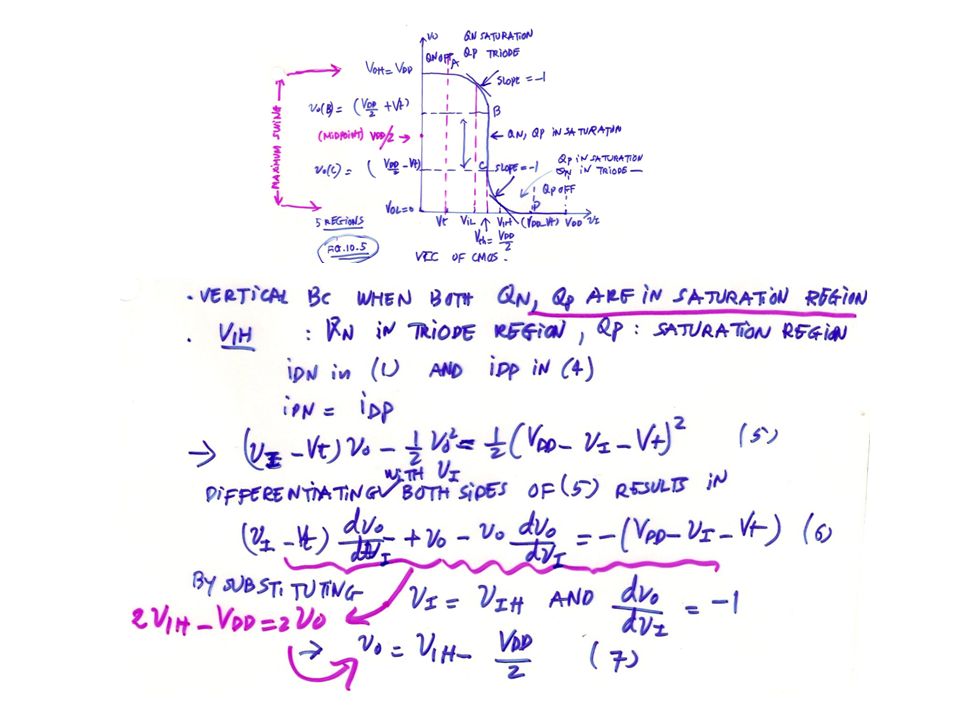 vo
QN SATURATION
QN OFF A QP TRIODE
VOH = VDD
SLOPE = -1
vo(B) = (VDD/2 + Vt)
B
(MIDPOINT) VDD/2
QN, QP IN SATURATION
MAXIMUM SWING
vo(C) = (VDD/2 - Vt)
C SLOPE = -1
QP IN SATURATION
QN IN TRIODE
QP OFF
D
VOL = 0
5 REGIONS
Vt VIL VIH (VDD-Vt) VDD vI
Vth = VDD/2
FIG.10.5
VTC OF CMOS.
. VERTICAL BC WHEN BOTH QN, QP ARE IN SATURATION REGION
. VIH : QN IN TRIODE REGION, QP : SATURATION REGION
iDN in (1) AND iDP in (4)
iDN = iDP
→ (vI - Vt) vo - 1/2 vo² = 1/2 (VDD - vI - Vt)² (5)
WITH vI
DIFFERENTIATING BOTH SIDES OF (5) RESULTS IN
(vI - Vt) dvo/dvI + vo - vo dvo/dvI = -(VDD - vI - Vt) (6)
BY SUBSTITUTING vI = VIH AND dvo/dvI = -1
2VIH - VDD = 2vo
→ vo = VIH - VDD/2 (7)